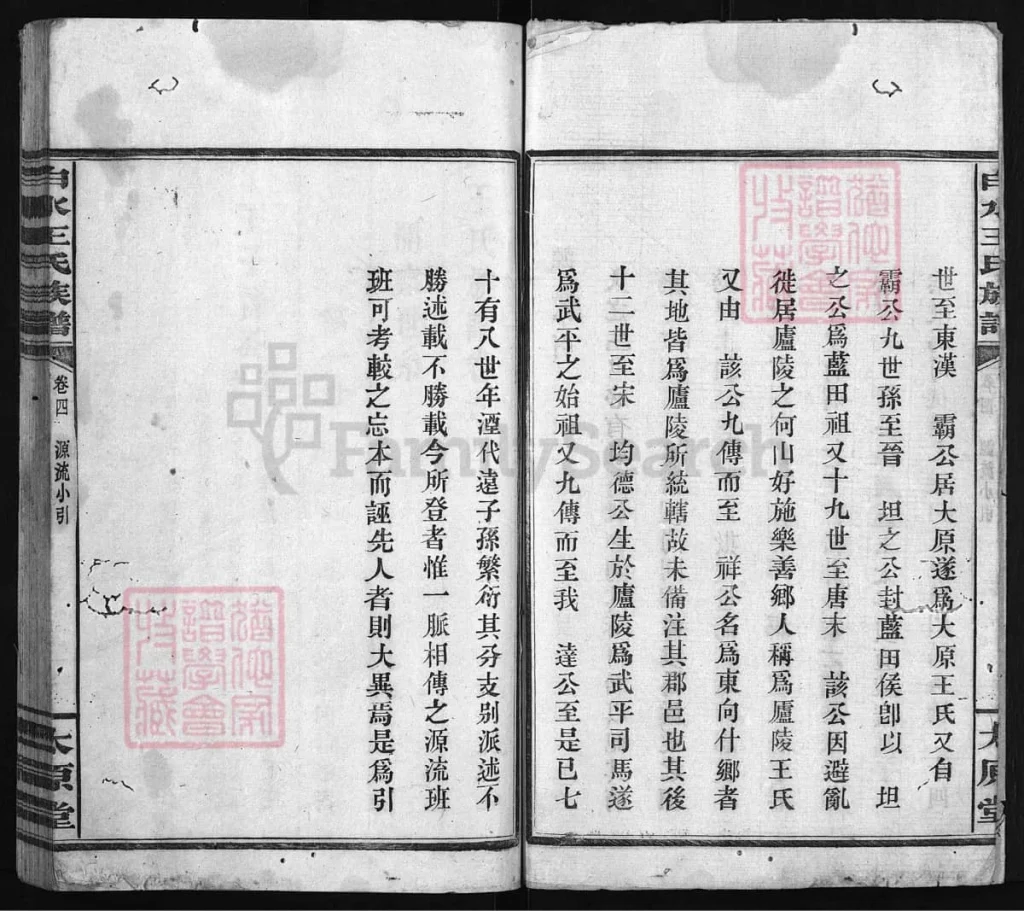 世至東漢　霸公居大原遂爲大原王氏又自
霸公九世孫至晉　坦之公封藍田侯卽以　坦
之公爲藍田祖又十九世至唐末　該公因避亂
徙居廬陵之何山好施樂善鄉人稱爲廬陵王氏
又由　該公九傳而至　祥公名爲東向什鄉者
其地皆爲廬陵所統轄故未備注其郡邑也其後
十二世至宋　均德公生於廬陵爲武平司馬遂
爲武平之始祖又九傳而至我　達公至是已七
十有八世年湮代遠子孫繁衍其分支别派述不
勝述載不勝載今所登者惟一脈相傳之源流班
班可考較之忘本而誣先人者則大異焉是爲引
白水王氏族譜
卷四　源流小引
太原堂
白水王氏族譜
太原堂
譜學會
收藏
譜學會
收藏
FamilySearch